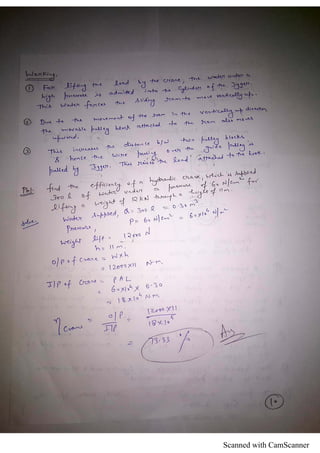 Working.
① For lifting the load by the crane, the water under a
high pressure is admitted into the cylinder of the Jigger.
This water forces the sliding ram to move vertically up.
② Due to the movement of the ram in the vertically up direction
the movable pulley block attached to the ram also moves
upward.
③ This increases the distance b/w two pulley blocks
& hence the wire passing over the guide pulley is
pulled by Jigger. This raises the load attached to the hook.
find the efficiency of a hydraulic crane, which is supplied
300 l of water under a pressure of 60 N/cm² for
lifting a weight of 12 kN through a height of 11 m.
Water supplied, Q = 300 l = 0.30 m³
Pressure, P = 60 N/cm² = 60×10⁴ N/m²
Weight lift = 12000 N
h = 11 m
O/P of Crane = W×h
= 12000×11 N-m
I/P of Crane = PAL
= 60×10⁴ × 0.30
= 18×10⁴ N m
η Crane = O/P / I/P = 12000×11 / 18×10⁴
= 73.33 %
Ans
10
Scanned with CamScanner